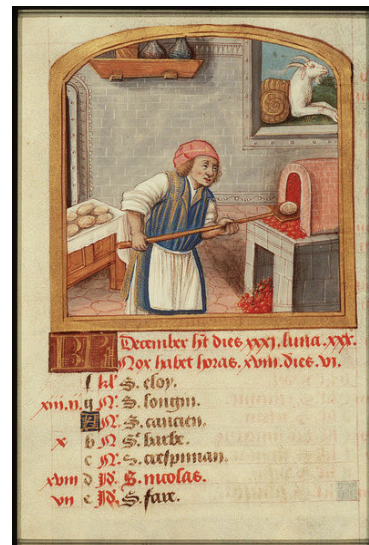 KL December ht dies xxxi. luna. xxx.
Nox habet horas. xviii. dies. vi.
f kl' S. eloy.
xiii.ii. g N. S. longin.
A N. S. cancien.
x b N. Ste barbe.
c N. S. crespinian.
xviii d Id. S. nicolas.
vii e Id. S.